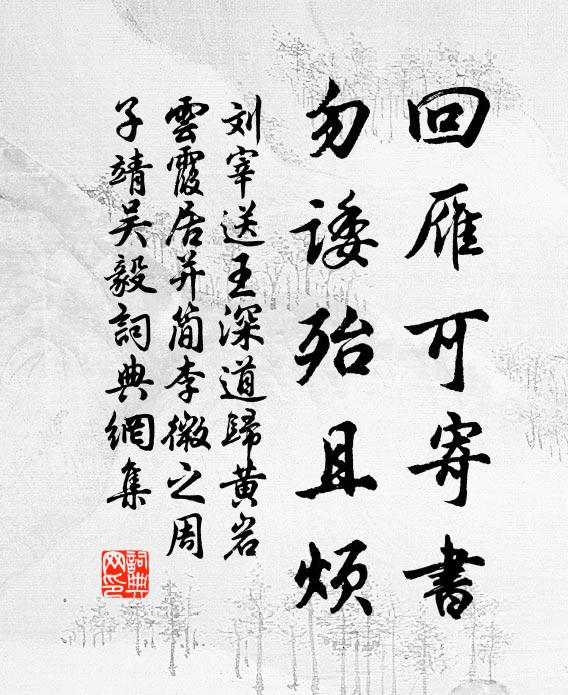 回雁可寄書
勿諉殆且煩
刘宰送王深道歸黄岩
雲霞居并简李微之周
子靖吴毅詞典網集
詞典网印